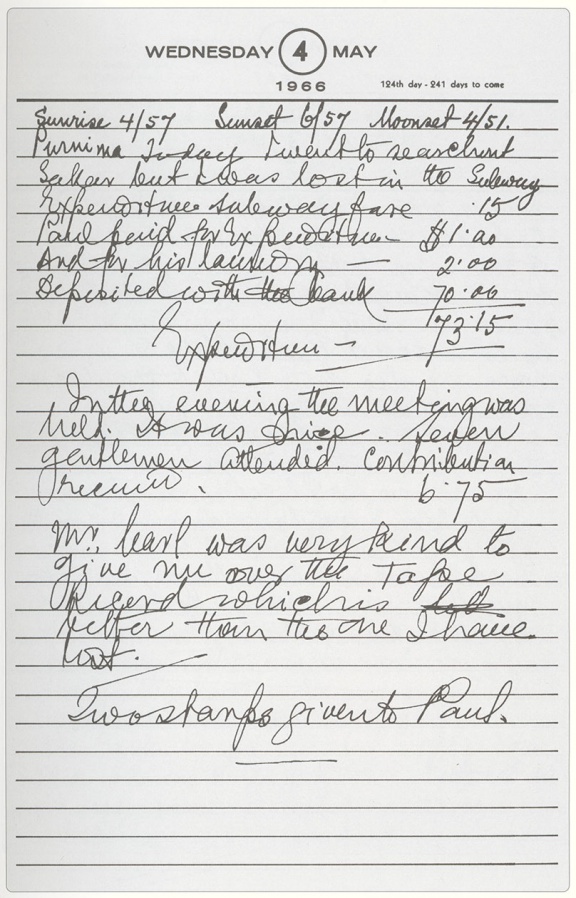 WEDNESDAY 4 MAY
1966
124th day - 241 days to come
Sunrise 4/57 Sunset 6/57 Moonset 4/51.
Purnima Today I went to search out
but I was lost in the Subway
Expenditure subway fare .15
Paul paid for Expenditure — $1.00
And for his laundry — 2.00
Deposited with the bank 70.00
73.15
Expenditure —
In the evening the meeting was
held. It was nice. Seven
gentlemen attended. Contribution
received. 6.75
Mr. Carl was very kind to
give me over the Tape
Record which is
better than the one I have
lost.
Two stamps given to Paul.